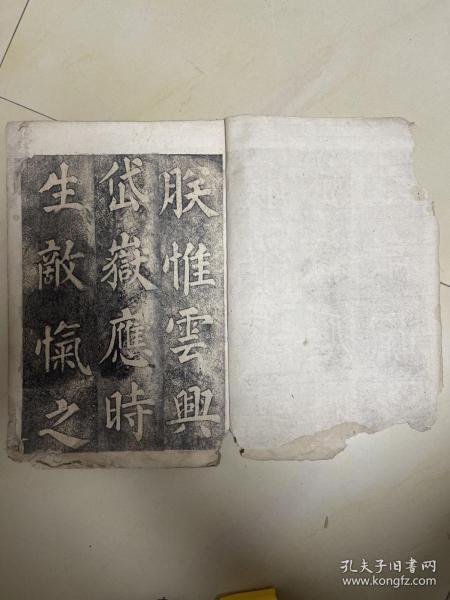 朕惟雲興
岱嶽應時
生敵愾之
孔夫子旧书网
www.kongfz.com